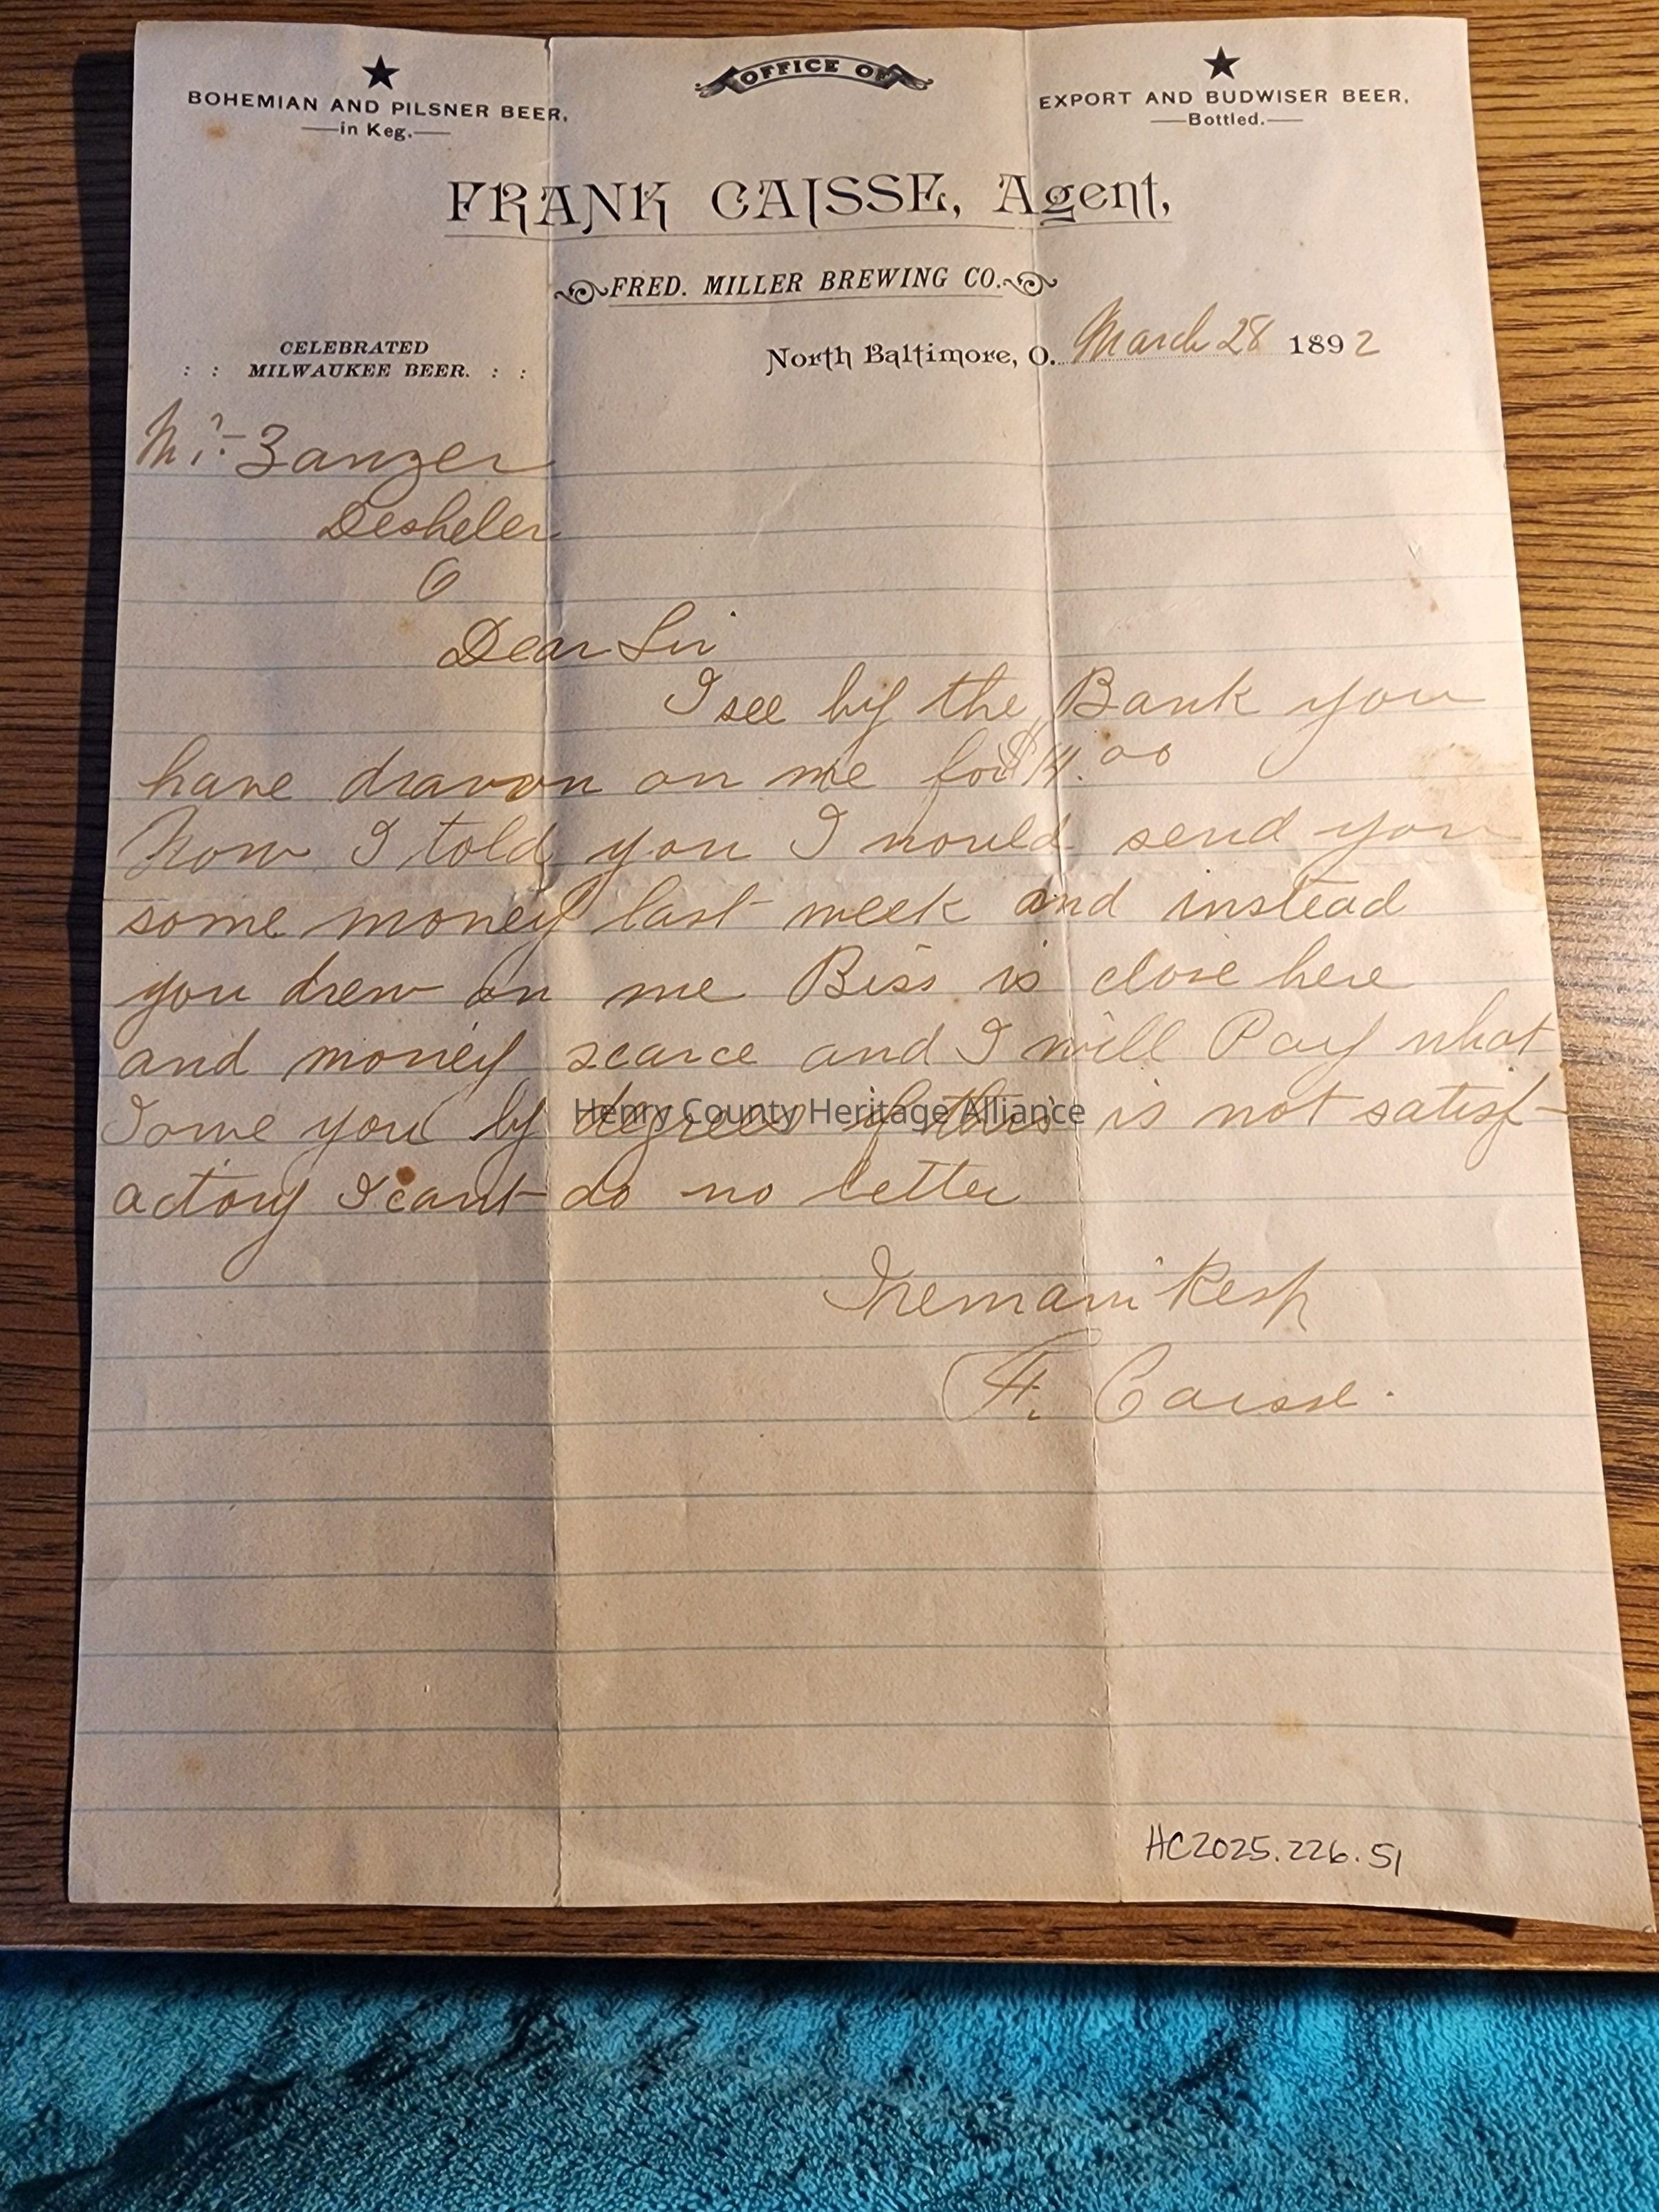 ★ ★
OFFICE OF
BOHEMIAN AND PILSNER BEER,
—in Keg.—
EXPORT AND BUDWISER BEER,
—Bottled.—
FRANK CAISSE, Agent,
FRED. MILLER BREWING CO.
CELEBRATED
: : MILWAUKEE BEER. : :
North Baltimore, O. March 28 1892
Mr. Zanger
Desheler
O
Dear Sir
I see by the Bank you
have drawn on me for $14.00
Now I told you I would send you
some money last week and instead
you drew on me Biss is close here
and money scarce and I will Pay what
I owe you by degrees if this is not satisf-
actory I cant do no better
I remain Resp
F. Caisse.
Henry County Heritage Alliance
HC2025.226.51